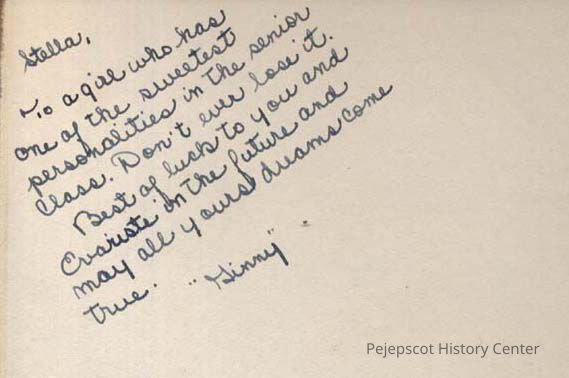 Stella,
To a girl who has
one of the sweetest
personalities in the senior
class. Don't ever lose it.
Best of luck to you and
Evariste in the future and
may all yours dreams come
true. "Ginny"
Pejepscot History Center